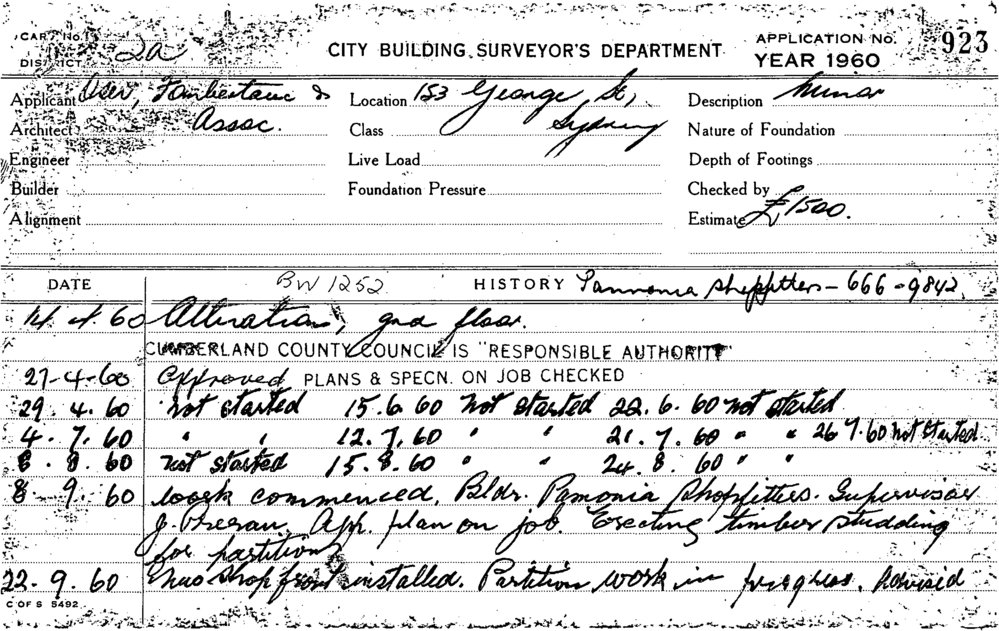 CARD No.
DISTRICT 2a
CITY BUILDING SURVEYOR'S DEPARTMENT
APPLICATION No. 923
YEAR 1960
Applicant
Architect Assoc.
Engineer
Builder
Alignment
Location 153 George St,
Class Sydney
Live Load
Foundation Pressure
Description Minor
Nature of Foundation
Depth of Footings
Checked by
Estimate £1500.
DATE BW 1252 HISTORY Pannonia Shopfitters - 666-9842
14.4.60 Alterations, gnd floor.
CUMBERLAND COUNTY COUNCIL IS "RESPONSIBLE AUTHORITY"
27-4-60 Approved PLANS & SPECN. ON JOB CHECKED
29.4.60 not started 15.6.60 not started 22.6.60 not started
4.7.60 " " 12.7.60 " " 21.7.60 " " 26.7.60 not started
8.8.60 not started 15.8.60 " " 24.8.60 " "
8.9.60 work commenced. Bldr. Pamonia Shopfitters. Supervisor
J. App. plan on job. Erecting timber studding
for partitions
22.9.60 New shop front installed. Partition work in progress. Advised
C OF S 5492